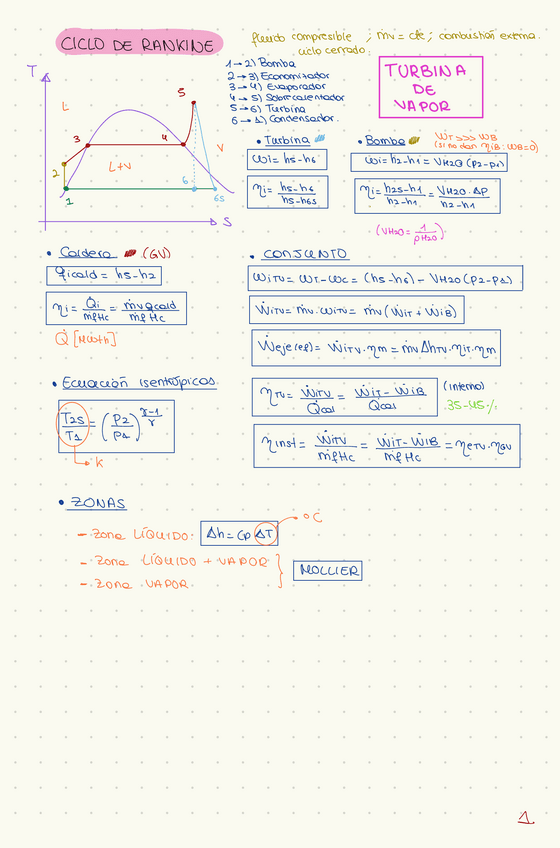 CICLO DE RANKINE
fluido compresible ; ṁv = cte ; combustión externa
ciclo cerrado.
1→2) Bomba
2→3) Economizador
3→4) Evaporador
4→5) Sobrecalentador
5→6) Turbina
6→1) Condensador.
TURBINA
DE
VAPOR
T
L
5
3
4
L+V
V
2
6
1
6s
S
• Turbina
wi = h5-h6
ηi = (h5-h6)/(h5-h6s)
• Bomba
WiT >>> WiB
(si no dan ηiB: WB=0)
wi = h2-h1 = VH2O (p2-p1)
ηi = (h2s-h1)/(h2-h1) = (VH2O · Δp)/(h2-h1)
(VH2O = 1/ρH2O)
• Caldera (GV)
qicald = h5-h2
ηi = Q̇i/(ṁf Hc) = (ṁv qcald)/(ṁf Hc)
Q̇ [MWth]
• CONJUNTO
WiTV = WT - WC = (h5-h6) - VH2O (p2-p1)
ẆiTV = ṁv · WiTV = ṁv (ẆiT + ẆiB)
Ẇeje (ef) = ẆiTV · ηm = ṁv ΔhTV · ηiT · ηm
ηTV = ẆiTV/Q̇cal = (ẆiT - ẆiB)/Q̇cal
(interno)
35-45%
ηinst = ẆiTV/(ṁf Hc) = (ẆiT - ẆiB)/(ṁf Hc) = ηeTV · ηGV
• Ecuación isentrópicos
T2s/T1 = (p2/p1)^((γ-1)/γ)
K
• ZONAS
- Zona LÍQUIDO: Δh = Cp ΔT
°C
- Zona LÍQUIDO + VAPOR
- Zona VAPOR
MOLLIER
1